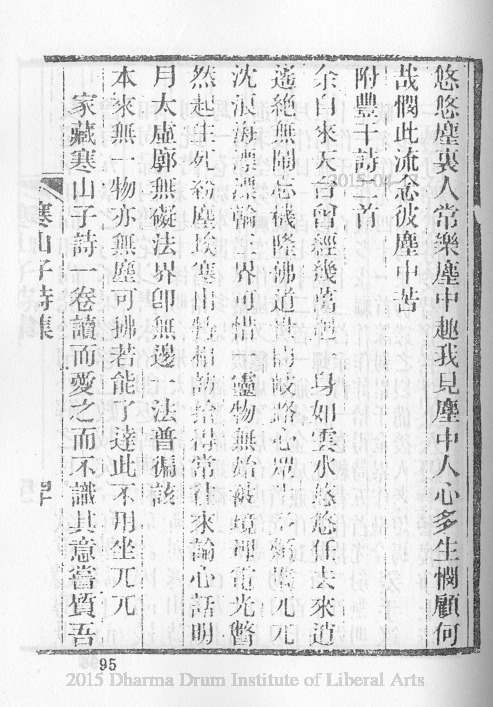 悠悠塵裏人常樂塵中趣我見塵中人心多生憫顧何
哉憫此流念彼塵中苦
附豐干詩二首
余自來天台曾經幾萬迴一身如雲水悠悠任去來逍
遙絕無鬧忘機隆佛道世途岐路心眾生多煩惱兀兀
沈浪海漂漂輪三界可惜一靈物無始被境埋電光瞥
然起生死紛塵埃寒山特相訪拾得常往來論心話明
月太虛廓無礙法界卽無邊一法普徧該
本來無一物亦無塵可拂若能了達此不用坐兀兀
家藏寒山子詩一卷讀而愛之而不識其意嘗質吾
寒山子詩集
95
2015 Dharma Drum Institute of Liberal Arts